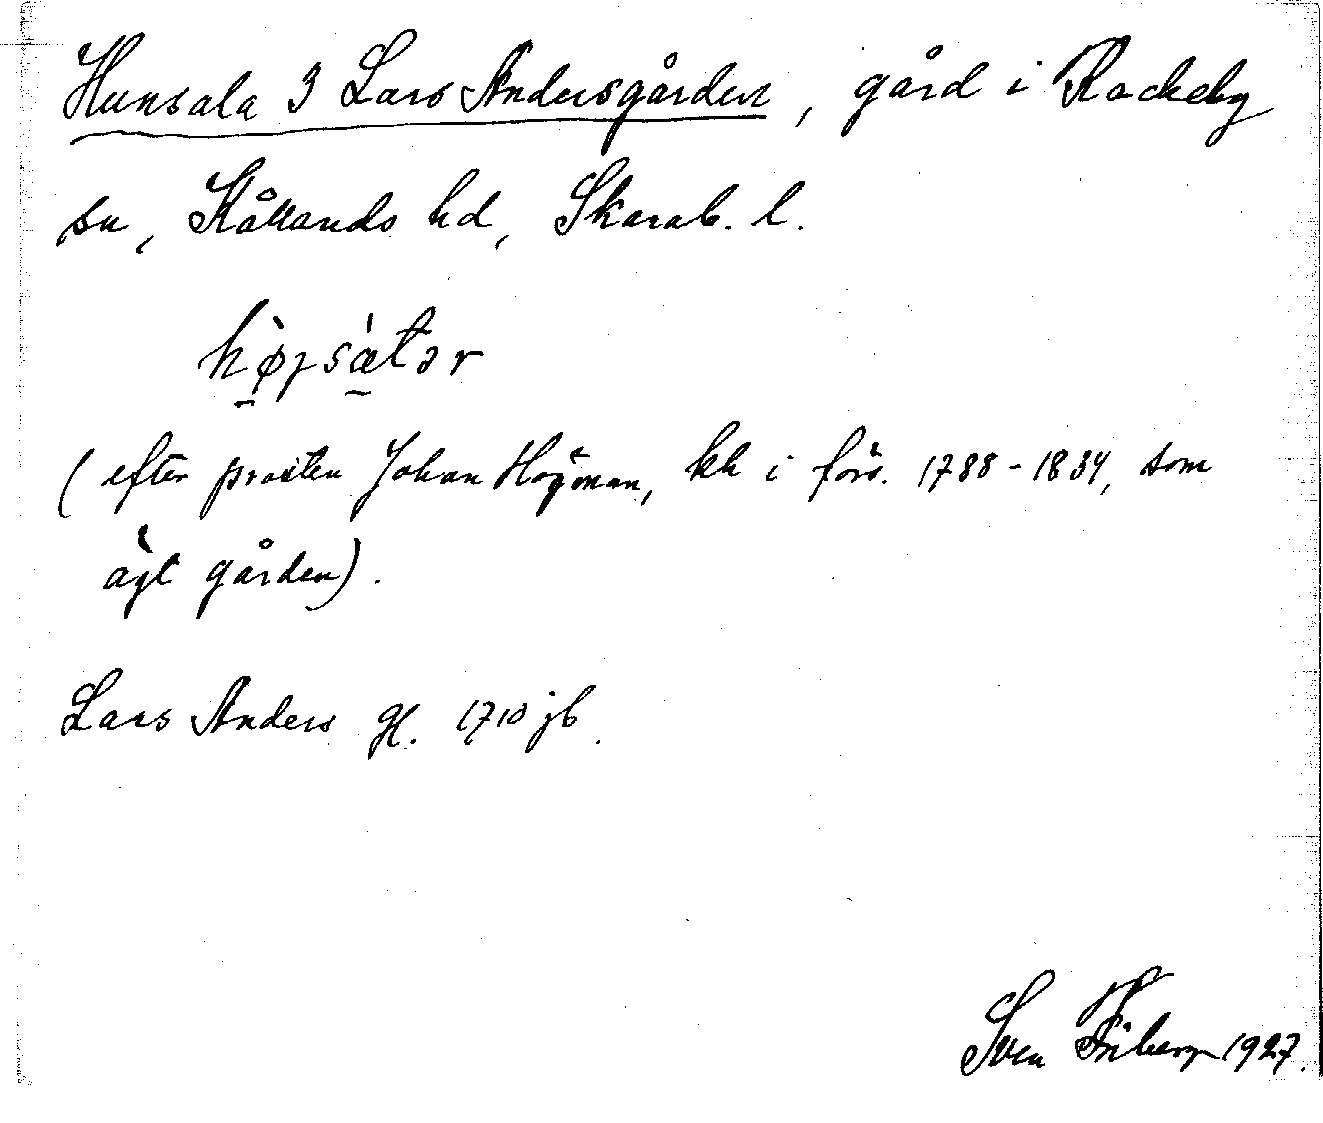 Hunsala 3 Lars Andersgården, gård i Rackeby
sn, Kållands hd, Skarab. l.
hø̀ɟsǽtər
(efter prosten Johan Högman, kh i förs. 1788-1834, som
ägt gården).
Lars Anders gl. 1710 jb.
Sven Friberg 1927.